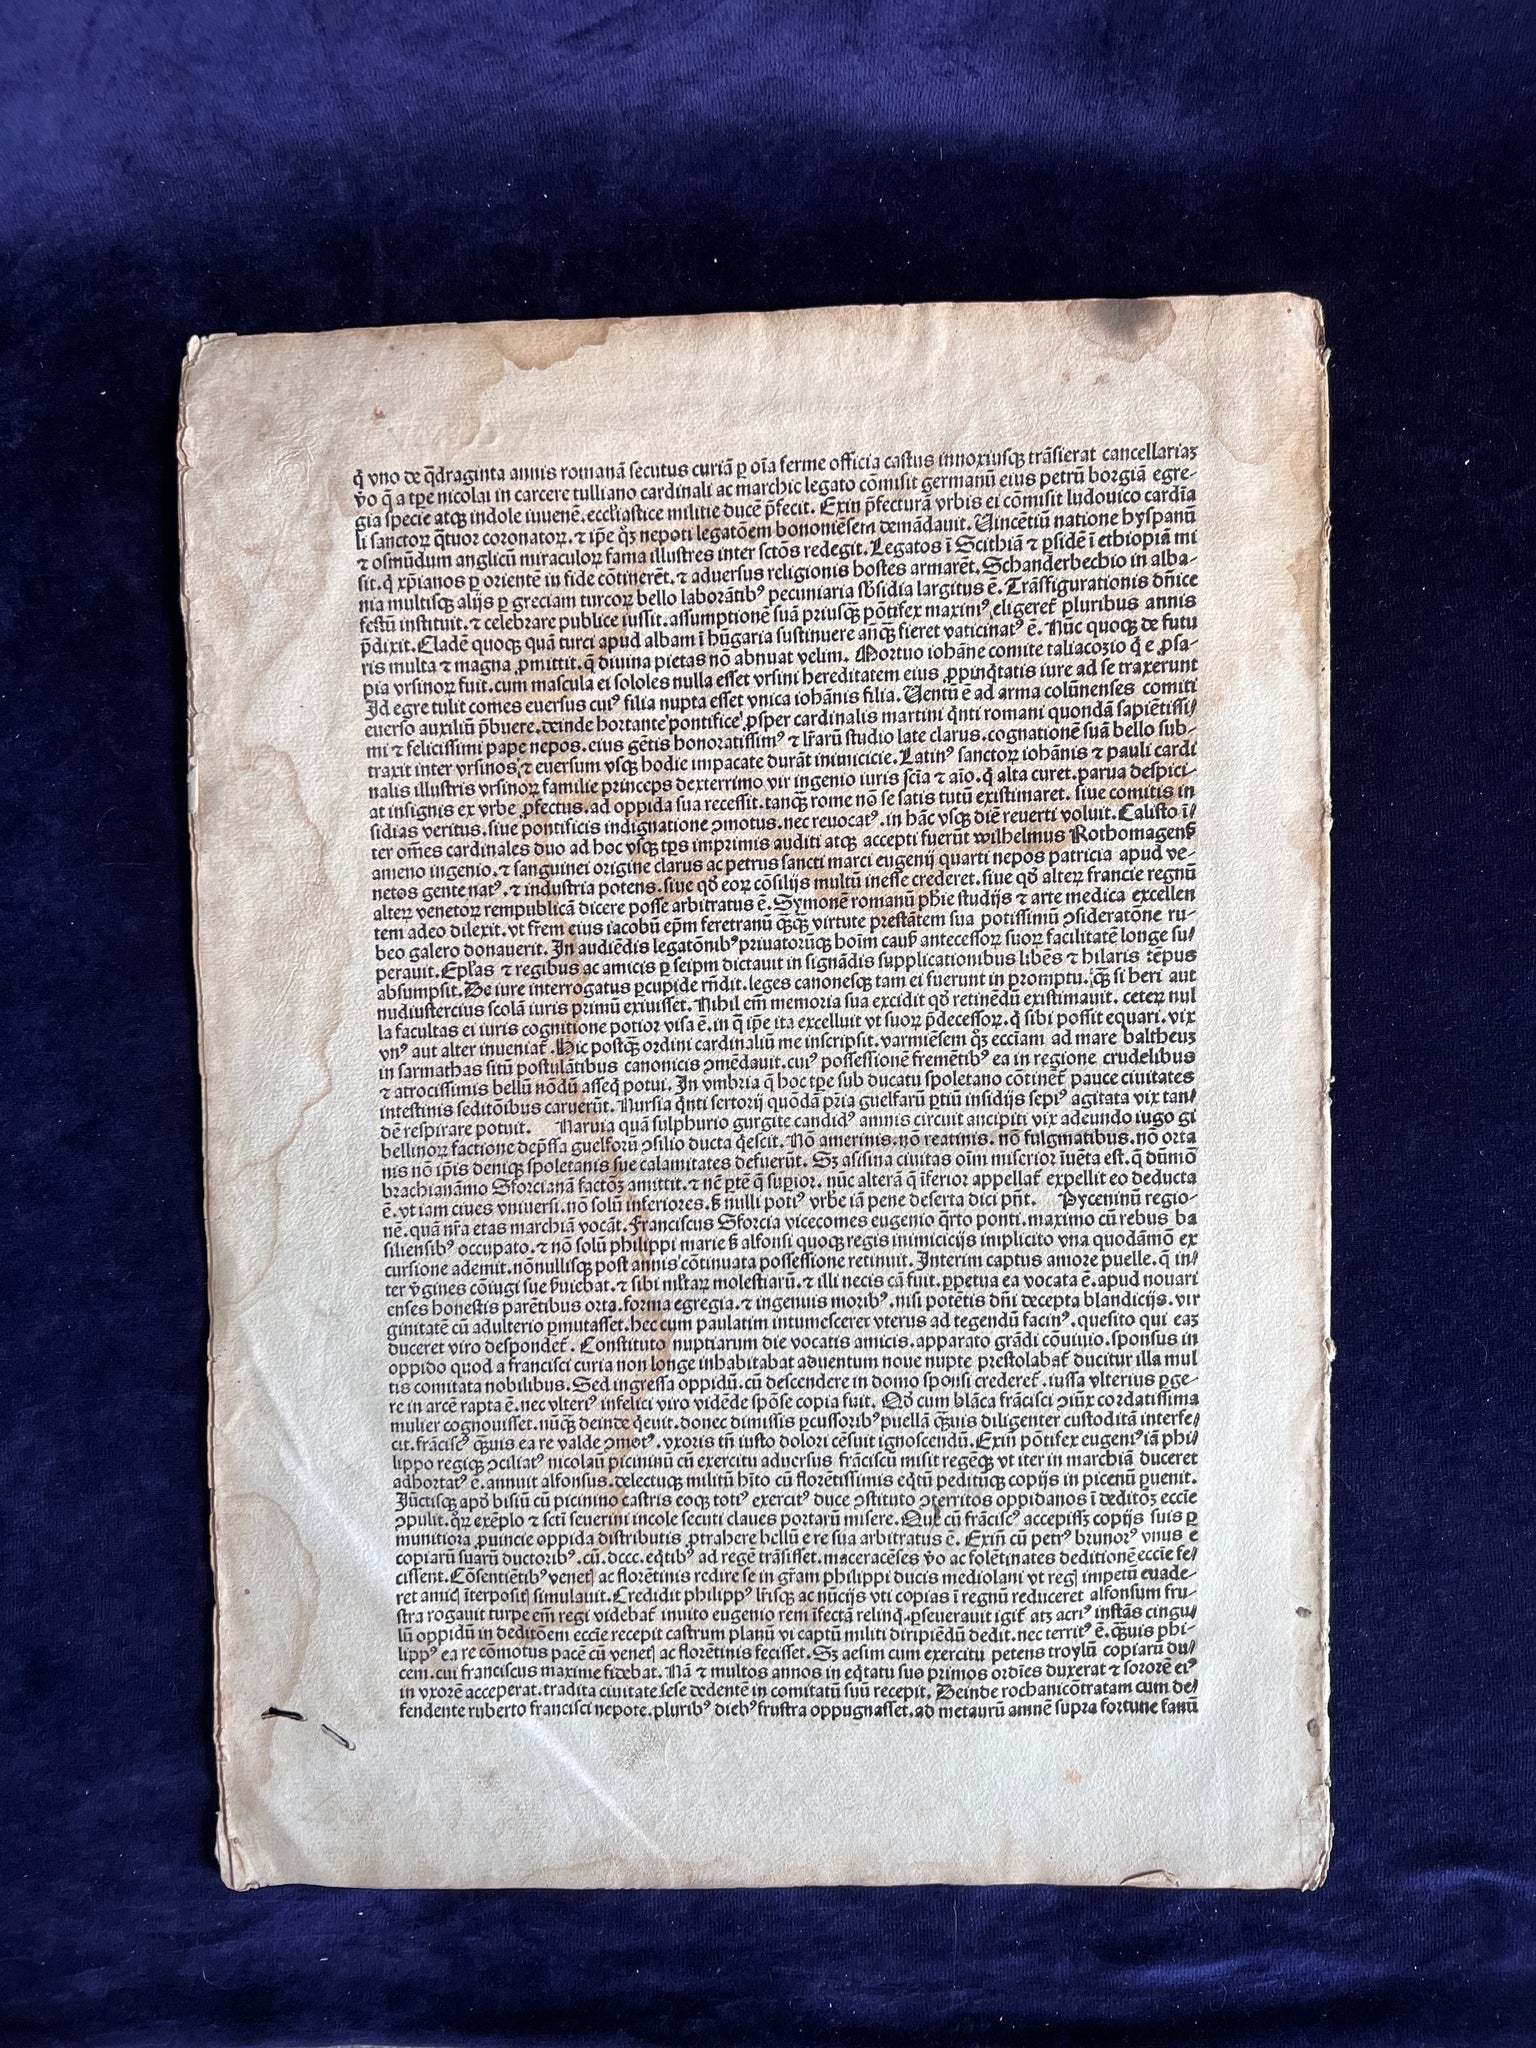 q̃ vno de q̃draginta annis romanã secutus curiã ꝑ oĩa ferme officia castus innoxiusqꝫ trãsierat cancellariaꝫ
ṽo q̃ a tꝑe nicolai in carcere tulliano cardinali ac marchie legato cõmisit germanũ eius petrũ borgiã egre-
gia specie atqꝫ indole iuuenẽ. eccl̃iastice militie ducẽ p̃fecit. Exin p̃fecturã vrbis ei cõmisit ludouico cardĩa
li sanctoꝝ q̃tuor coronatoꝝ. ⁊ ip̃e qꝫ nepoti legatõem bononiẽsem demãdauit. Uincẽtiũ natione hyspanũ
⁊ osmũdum anglicũ miraculoꝝ fama illustres inter sctõs redegit. Legatos ĩ Scithiã ⁊ ꝑsidẽ ĩ ethiopiã mi
sit. q̃ xp̃ianos ꝑ orientẽ in fide cõtinerẽt. ⁊ aduersus religionis hostes armarẽt. Schanderbechio in alba-
nia multisqꝫ alijs ꝑ greciam turcoꝝ bello laborãtibꝰ pecuniaria sb̃sidia largitus ẽ. Trãsfigurationis dñice
festũ instituit. ⁊ celebrare publice iussit. assumptionẽ suã priusqꝫ põtifex maximꝰ eligereť pluribus annis
p̃dixit. Cladẽ quoqꝫ quã turci apud albam ĩ hũgaria sustinuere anq̃ꝫ fieret vaticinatꝰ ẽ. Nũc quoqꝫ de futu
ris multa ⁊ magna ꝓmittit. q̃ diuina pietas nõ abnuat velim. Mortuo iohãne comite taliacozio q̃ e ꝓsa-
pia vrsinoꝝ fuit. cum mascula ei sololes nulla esset vrsini hereditatem eius ꝓpinq̃tatis iure ad se traxerunt
Id egre tulit comes euersus cuiꝰ filia nupta esset vnica iohãnis filia. Uentũ ẽ ad arma colũnenses comiti
euerso auxiliũ p̃buere. deinde hortante pontifice ꝓsper cardinalis martini q̃nti romani quondã sapiẽtissi
mi ⁊ felicissimi pape nepos. eius gẽtis honoratissimꝰ ⁊ lr̃arũ studio late clarus. cognationẽ suã bello sub-
traxit inter vrsinos ⁊ euersum vsqꝫ hodie impacate durãt inimicicie. Latinꝰ sanctoꝝ iohãnis ⁊ pauli cardi
nalis illustris vrsinoꝝ familie princeps dexterrimo vir ingenio iuris sciã ⁊ aĩo. q̃ alta curet. parua despici-
at insignis ex vrbe ꝓfectus. ad oppida sua recessit. tanqꝫ rome nõ se satis tutũ existimaret. siue comitis in
sidias veritus. siue pontificis indignatione ꝯmotus. nec reuocatꝰ. in hãc vsqꝫ diẽ reuerti voluit. Calisto ĩ
ter om̃es cardinales duo ad hoc vsqꝫ tp̃s imprimis auditi atqꝫ accepti fuerũt wilhelmus Rothomagens̃
ameno ingenio. ⁊ sanguinei origine clarus ac petrus sancti marci eugenij quarti nepos patricia apud ve-
netos gente natꝰ. ⁊ industria potens. siue qd̃ eoꝝ cõsilijs multũ inesse crederet. siue qd̃ alteꝝ francie regnũ
alteꝝ venetoꝝ rempublicã dicere posse arbitratus ẽ. Symonẽ romanũ ph̃ie studijs ⁊ arte medica excellen
tem adeo dilexit. vt fr̃em eius iacobũ ep̃m feretranũ q̃qꝫ virtute prestãtem sua potissimũ ꝯsideratone ru-
beo galero donauerit. In audiẽdis legatõnibꝰ priuatorũqꝫ hoĩm caus̃ antecessoꝝ suoꝝ facilitatẽ longe su
perauit. Epl̃as ⁊ regibus ac amicis ꝑ seipm dictauit in signãdis supplicationibus libẽs ⁊ hilaris tẽpus
absumpsit. De iure interrogatus ꝑcupide rñdit. leges canonesqꝫ tam ei fuerunt in promptu. q̃ꝫ si heri aut
nudiustercius scolã iuris primũ exiuisset. Nihil em̃ memoria sua excidit qd̃ retinẽdũ existimauit. ceteꝝ nul
la facultas ei iuris cognitione potior visa ẽ. in q̃ ip̃e ita excelluit vt suoꝝ p̃decessoꝝ. q̃ sibi possit equari. vix
vnꝰ aut alter inueniať. Hic postqꝫ ordini cardinaliũ me inscripsit. varmiẽsem qꝫ ecciam ad mare baltheuꝫ
in sarmathas sitũ postulãtibus canonicis ꝯmẽdauit. cuiꝰ possessionẽ fremẽtibꝰ ea in regione crudelibus
⁊ atrocissimis bellũ nõdũ asseq̃ potui. In vmbria q̃ hoc tꝑe sub ducatu spoletano cõtineť pauce ciuitates
intestinis seditõibus caruerũt. Nursia q̃nti sertorij quõdã pr̃ia guelfarũ ꝑtiũ insidijs sepiꝰ agitata vix tan
dẽ respirare potuit. Narnia quã sulphurio gurgite candidꝰ amnis circuit ancipiti vix adeundo iugo gi
bellinoꝝ factione dep̃ssa guelforũ ꝯsilio ducta q̃escit. Nõ amerinis. nõ reatinis. nõ fulgmatibus. nõ orta
nis nõ ip̃is deniqꝫ spoletanis sue calamitates defuerũt. Sꝫ asisina ciuitas oĩm miserior iuẽta est. q̃ dũmõ
brachianãmo Sforcianã factõeꝫ amittit. ⁊ nẽ ꝑtẽ q̃ suꝑior. nũc alterã q̃ ĩferior appellať expellit eo deducta
ẽ. vt iam ciues vniuersi. nõ solũ inferiores. s̃ nulli potiꝰ vrbẽ iã pene deserta dici pñt. Pyceninũ regio-
nẽ. quã nr̃a etas marchiã vocãt. Franciscus Sforcia vicecomes eugenio q̃rto ponti. maximo cũ rebus ba
siliensibꝰ occupato. ⁊ nõ solũ philippi marie s̃ alfonsi quoqꝫ regis inimicicijs implicito vna quodãmõ ex
cursione ademit. nõnullisqꝫ post annis cõtinuata possessione retinuit. Interim captus amore puelle. q̃ in
ter ṽgines cõiugi sue s̃uiebat. ⁊ sibi ml̃taꝝ molestiarũ. ⁊ illi necis cã fuit. ꝑpetua ea vocata ẽ. apud nouari
enses honestis parẽtibus orta. forma egregia. ⁊ ingenuis moribꝰ. nisi potẽtis dñi decepta blandicijs. vir
ginitatẽ cũ adulterio ꝑmutasset. hec cum paulatim intumesceret vterus ad tegendũ facinꝰ. quesito qui eaꝫ
duceret viro despondeť. Constituto nuptiarum die vocatis amicis. apparato grãdi cõuiuio. sponsus in
oppido quod a francisci curia non longe inhabitabat aduentum noue nupte prestolabať ducitur illa mul
tis comitata nobilibus. Sed ingressa oppidũ. cũ descendere in domo sponsi credereť. iussa vlterius ꝑge-
re in arcẽ rapta ẽ. nec vlteriꝰ infelici viro vidẽde spõse copia fuit. Qd̃ cum blãca frãcisci ꝯiũx cordatissima
mulier cognouisset. nũqꝫ deinde q̃euit. donec dimissis ꝑcussoribꝰ puellã q̃ꝫuis diligenter custoditã interfe
cit. frãciscꝰ q̃ꝫuis ea re valde ꝯmotꝰ. vxoris tñ iusto dolori cẽsuit ignoscendũ. Exin põtifex eugeniꝰ iã phi
lippo regiqꝫ ꝯciliatꝰ nicolaũ picininũ cũ exercitu aduersus frãciscũ misit regẽqꝫ vt iter in marchiã duceret
adhortatꝰ ẽ. annuit alfonsus. delectuqꝫ militũ hĩto cũ florẽtissimis eq̃tũ peditũqꝫ copijs in picenũ ꝑuenit.
Iũctisqꝫ apd̃ bisiũ cũ picinino castris eoqꝫ totiꝰ exercitꝰ duce ꝯstituto ꝯterritos oppidanos ĩ deditõeꝫ eccĩe
ꝯpulit. qꝝ exẽplo ⁊ sctĩ seuerini incole secuti claues portarũ misere. Que cũ frãciscꝰ accepissꝫ copijs suis ꝑ
munitiora ꝓuincie oppida distributis ꝓtrahere bellũ e re sua arbitratus ẽ. Exin cũ petrꝰ brunorꝰ vnus e
copiarũ suarũ ductoribꝰ. cũ. dccc. eq̃tibꝰ ad regẽ trãsisset. maceracẽses ṽo ac folẽtinates deditionẽ eccĩe fe
cissent. Cõsentiẽtibꝰ venetꝭ ac florẽtinis redire se in gr̃am philippi ducis mediolani vt regꝭ impetũ euade-
ret amicꝭ ĩterpositꝭ simulauit. Credidit philippꝰ lr̃isqꝫ ac nũcijs vti copias ĩ regnũ reduceret alfonsum fru-
stra rogauit turpe em̃ regi videbať inuito eugenio rem ĩfectã relinq̃. ꝑseuerauit igiť atqꝫ acriꝰ instãs cingu
lũ oppidũ in deditõem eccĩe recepit castrum planũ vi captũ militi diripiẽdũ dedit. nec territꝰ ẽ. q̃ꝫuis phi-
lippꝰ ea re cõmotus pacẽ cũ venetꝭ ac florẽtinis fecisset. Sꝫ aesim cum exercitu petens troylũ copiarũ du
cem. cui franciscus maxime fidebat. Nã ⁊ multos annos in eq̃tatu suo primos ordĩes duxerat ⁊ sororẽ eiꝰ
in vxorẽ acceperat. tradita ciuitate sese dedentẽ in comitatũ suũ recepit. Deinde rochanicõtratam cum de
fendente ruberto francisci nepote. pluribꝰ diebꝰ frustra oppugnasset. ad metaurũ amnẽ supra fortune fanũ